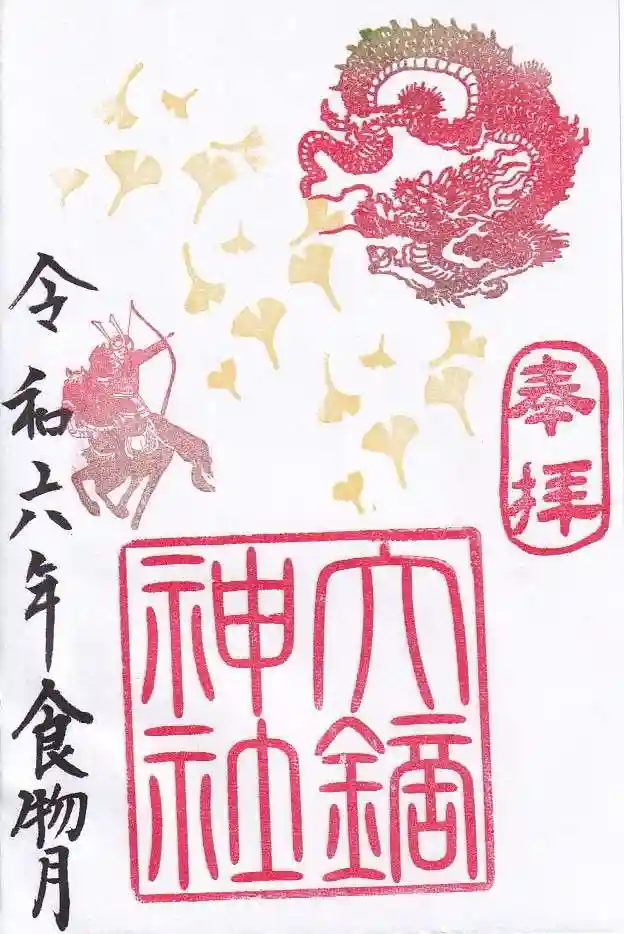 奉拝
大鏑
神社
令和六年食物月